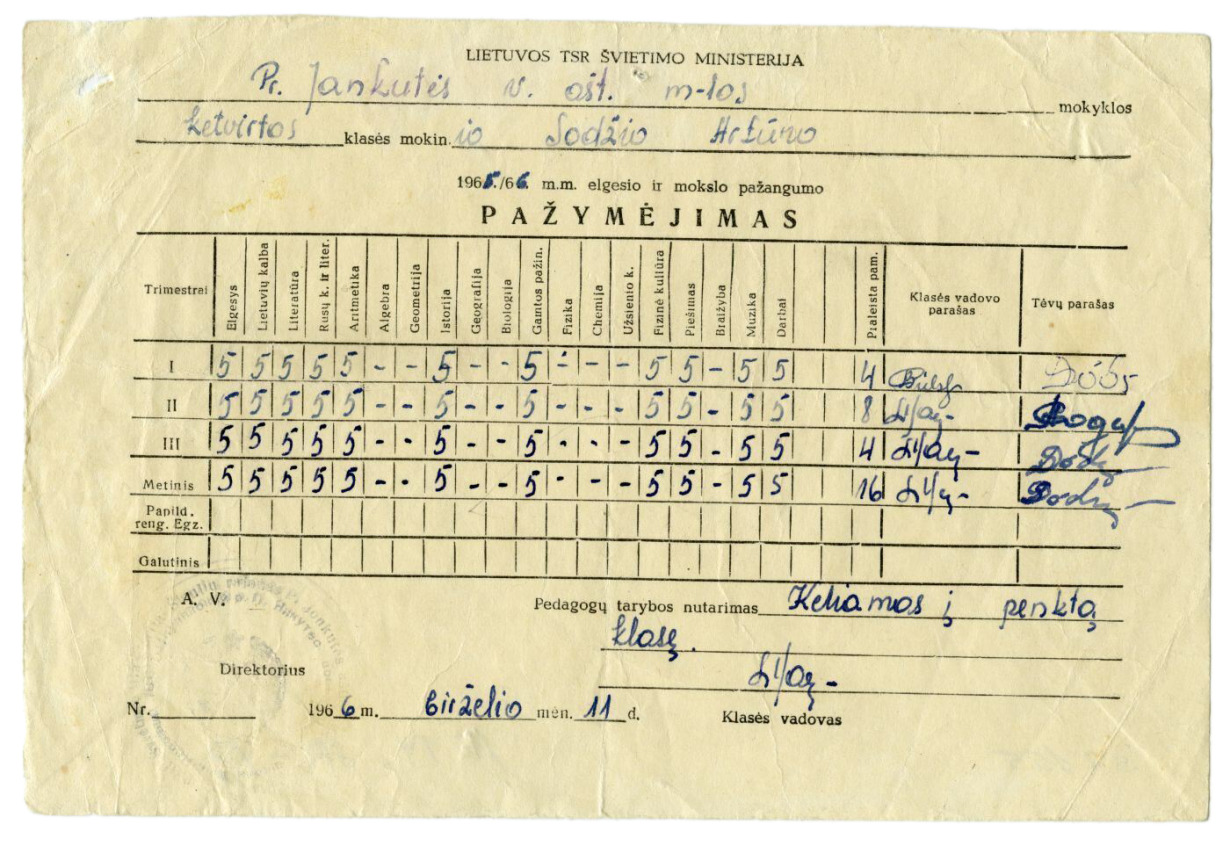 LIETUVOS TSR ŠVIETIMO MINISTERIJA
Pr. Jankutės v. ašt. m-los mokyklos
ketvirtos klasės mokin.io Sodžio Artūro
1965./66. m.m. elgesio ir mokslo pažangumo
PAŽYMĖJIMAS
Trimestrai Elgesys Lietuvių kalba Literatūra Rusų k. ir liter. Aritmetika Algebra Geometrija Istorija Geografija Biologija Gamtos pažin. Fizika Chemija Užsienio k. Fizinė kultūra Piešimas Braižyba Muzika Darbai Praleista pam. Klasės vadovo parašas Tėvų parašas
I 5 5 5 5 5 - - 5 - - 5 - - - 5 5 - 5 5 4
II 5 5 5 5 5 - - 5 - - 5 - - - 5 5 - 5 5 8
III 5 5 5 5 5 - - 5 - - 5 - - - 5 5 - 5 5 4
Metinis 5 5 5 5 5 - - 5 - - 5 - - - 5 5 - 5 5 16
Papild. reng. Egz.
Galutinis
A. V.
Pedagogų tarybos nutarimas Keliamas į penktą
klasę.
Direktorius
Nr. 1966 m. birželio mėn. 11 d. Klasės vadovas